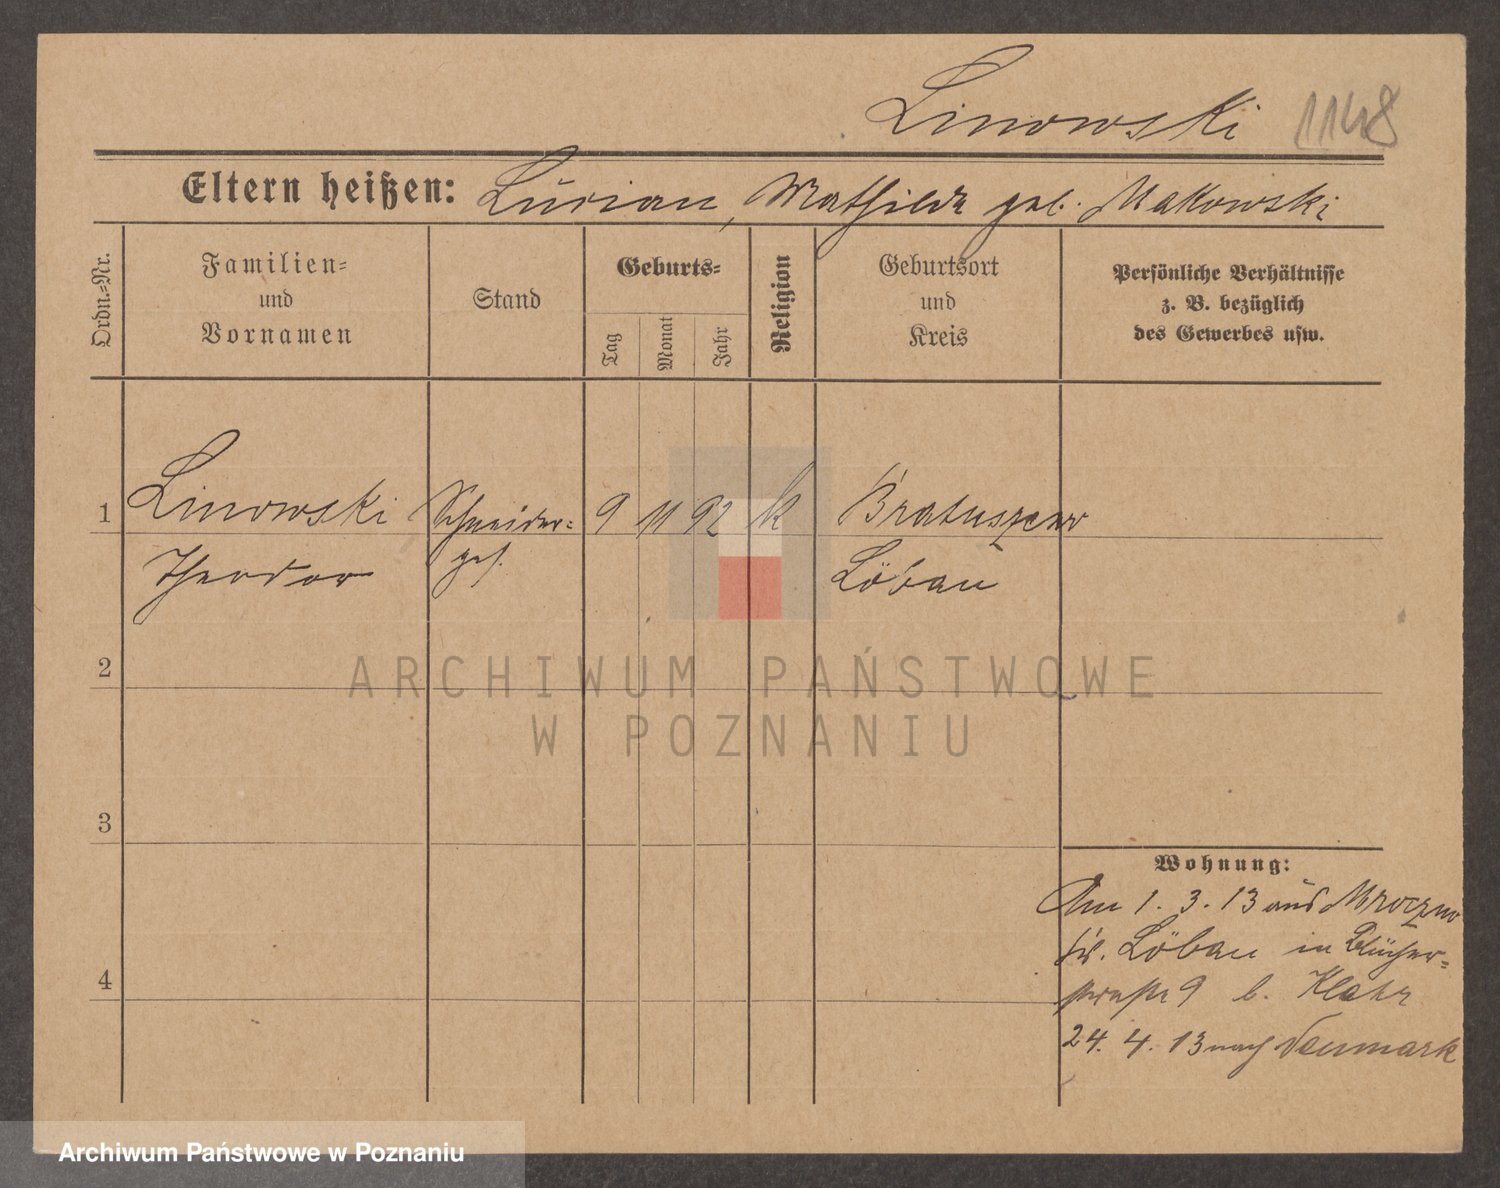 Linowski 1148
Eltern heißen: Lucian, Mathilde geb. Makowski
Ordn.=Nr.
Familien=
und
Vornamen
Stand
Geburts=
Tag
Monat
Jahr
Religion
Geburtsort
und
Kreis
Persönliche Verhältnisse
z. B. bezüglich
des Gewerbes usw.
1 Linowski Schneider= 9 11 92 k Bratuszewo
Theodor ges. Löbau
2
ARCHIWUM PAŃSTWOWE
W POZNANIU
3
Wohnung:
Am 1. 3. 13 aus Mroczno
Kr. Löbau in Blücher=
4
straße 9 b. Klahr
24. 4. 13 nach Neumark
Archiwum Państwowe w Poznaniu